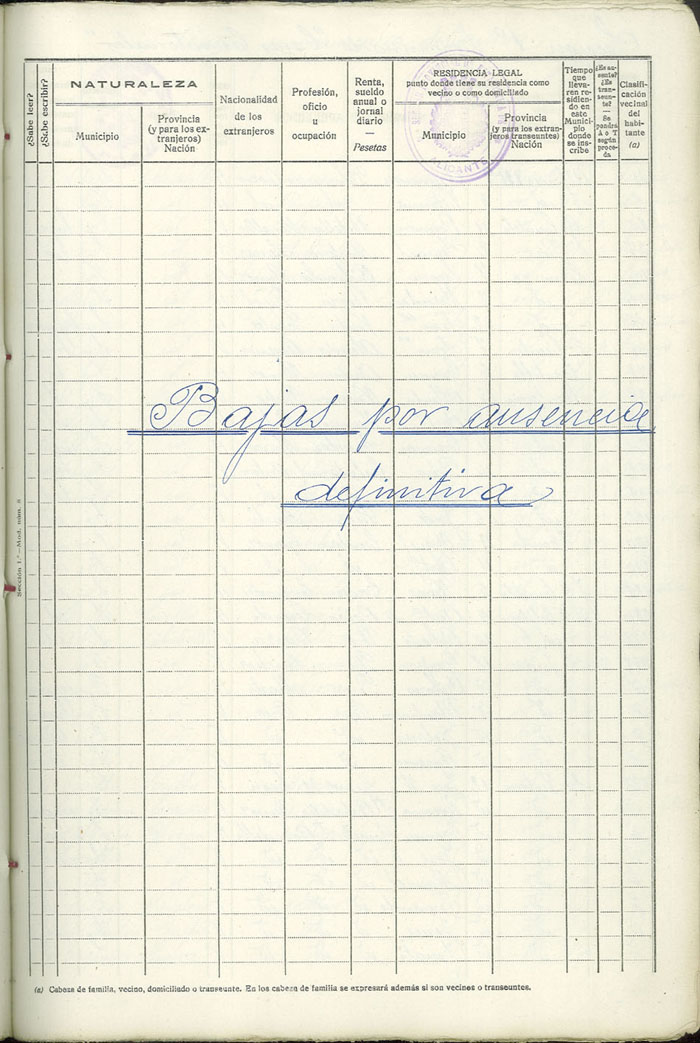 ¿Sabe leer?
¿Sabe escribir?
NATURALEZA
Municipio
Provincia
(y para los ex-
tranjeros)
Nación
Nacionalidad
de los
extranjeros
Profesión,
oficio
u
ocupación
Renta,
sueldo
anual o
jornal
diario
—
Pesetas
RESIDENCIA LEGAL
punto donde tiene su residencia como
vecino o como domiciliado
Municipio
Provincia
(y para los extran-
jeros transeuntes)
Nación
Tiempo
que
lleva-
ren re-
sidien-
do en
este
Munici-
pio
donde
se ins-
cribe
¿Es au-
sente?
¿Es
tran-
seun-
te?
—
Se
pondrá
A o T
según
proce-
da
Clasifi-
cación
vecinal
del
habi-
tante
(a)
ALICANTE
Bajas por ausencia
definitiva
Sección 1.ª—Mod. núm.
(a) Cabeza de familia, vecino, domiciliado o transeunte. En los cabeza de familia se expresará además si son vecinos o transeuntes.